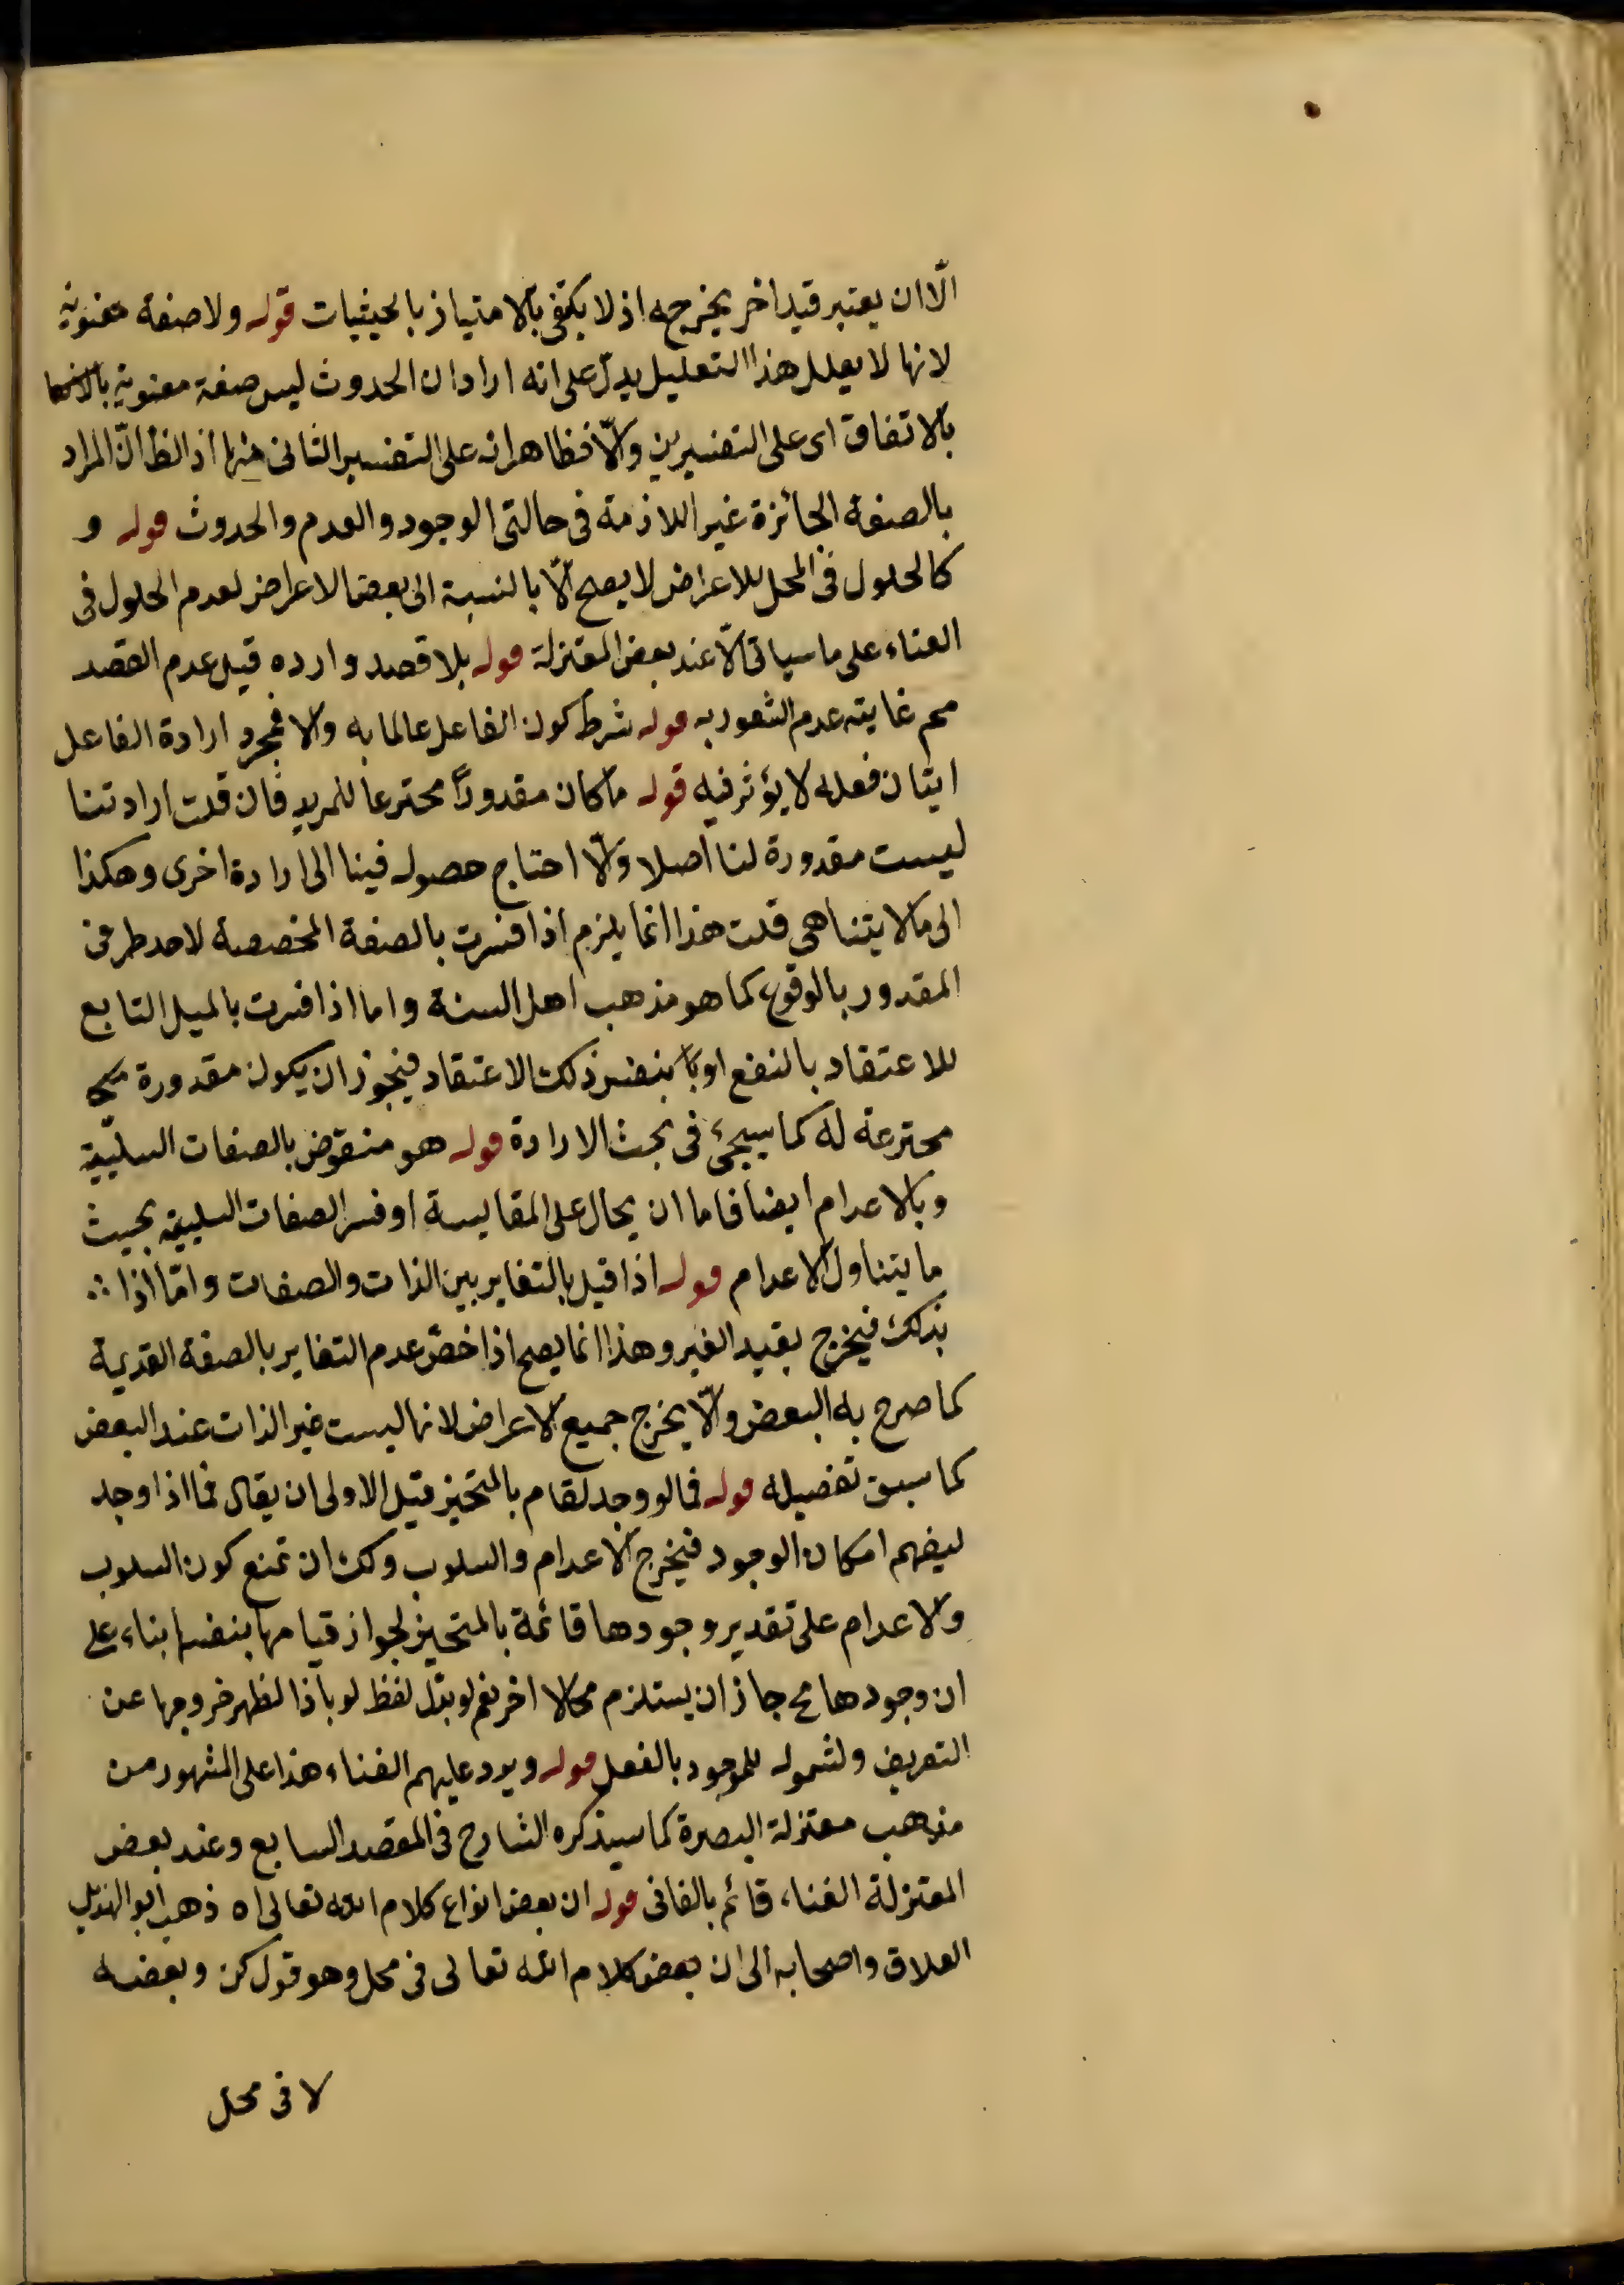 الّا ان يعتبر قيد اخر يخرجه اذ لا يكتفى بالامتياز بالحيثيات قوله ولا صفة معنوية
لانها لا يعلل هذا التعليل يدل على انه اراد ان الحدوث ليس صفة معنوية
بالاتفاق اى على التفسيرين والّا فظاهر انه على التفسير الثانى منها اذ الظ انّ المراد
بالصفة الجائزة غير اللازمة فى حالتى الوجود والعدم والحدوث قوله و
كالحلول فى المحل للاعراض لا يصح الّا بالنسبة الى بعض الاعراض لعدم الحلول فى
الفناء على ما سياتى الّا عند بعض المعتزلة قوله بلا قصد واراده قيل عدم القصد
مم غايته عدم الشعور به قوله شرط كون الفاعل عالما به والا فمجرد ارادة الفاعل
اتيان فعله لا يؤثر فيه قوله ما كان مقدورًا مخترعا للمريد فان قلت ارادتنا
ليست مقدورة لنا اصلا والّا احتاج حصوله فينا الى ارادة اخرى وهكذا
الى ما لا يتناهى قلت هذا انما يلزم اذا فسرت بالصفة المخصصة لاحد طرفى
المقدور بالوقوع كما هو مذهب اهل السنة واما اذا فسرت بالميل التابع
للاعتقاد بالنفع او بنفس ذلك الاعتقاد فيجوز ان يكون مقدورة
مخترعة له كما سيجئ فى بحث الارادة قوله هو منقوض بالصفات السلبية
وبالاعدام ايضا فاما ان يحال على المقايسة او فسر الصفات السلبية بحيث
ما يتناول الاعدام قوله اذا قيل بالتغاير بين الذات والصفات وامّا اذا ∴
بذلك فيخرج بقيد الغير وهذا انما يصح اذا خصّ عدم التغاير بالصفة القديمة
كما صرح به البعض والّا يخرج جميع الاعراض لانها ليست غير الذات عند البعض
كما سبق تفصيله قوله فما لو وجد لقام بالمتحيز قيل الاولى ان يقال فما اذا وجد
ليفهم امكان الوجود فيخرج الاعدام والسلوب ولك ان تمنع كون السلوب
والاعدام على تقدير وجودها قائمة بالمتحيز لجواز قيامها بنفسها بناء على
ان وجودها مح جاز ان يستلزم محالا اخر نعم لو بدّل لفظ لو باذا لظهر خروجها عن
التعريف ولشموله للموجود بالفعل قوله ويرد عليهم الفناء هذا على المشهور من
مذهب معتزلة البصرة كما سيذكره الشارح فى المقصد السابع وعند بعض
المعتزلة الفناء قائم بالفانى قوله ان بعض انواع كلام الله تعالى اه ذهب ابو الهذيل
العلاق واصحابه الى ان بعض كلام الله تعالى فى محل وهو قول كن وبعضه
لا فى محل